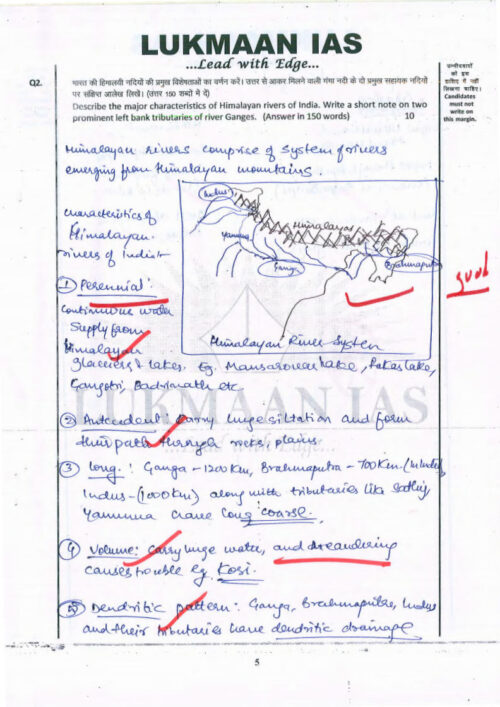 LUKMAAN IAS
...Lead with Edge...
उम्मीदवारों को इस हाशिए में नहीं लिखना चाहिए।
Candidates must not write on this margin.
Q2. भारत की हिमालयी नदियों की प्रमुख विशेषताओं का वर्णन करें। उत्तर से आकर मिलने वाली गंगा नदी के दो प्रमुख सहायक नदियों
पर संक्षिप्त आलेख लिखें। (उत्तर 150 शब्दों में दें)
Describe the major characteristics of Himalayan rivers of India. Write a short note on two
prominent left bank tributaries of river Ganges. (Answer in 150 words) 10
Himalayan rivers comprise of system of rivers
emerging from Himalayan mountains.
Indus
Himalayas
Yamuna
Ganga
Brahmaputra
Himalayan River System
good
characteristics of
Himalayan
rivers of India:
① Perennial:
continuous water
supply from
Himalayan
glaciers & lakes. Eg. Mansarovar lake, Rakas lake,
Gangotri, Badrinath etc.
② Antecedent: Carry huge siltation and form
their path through rocks, plains.
③ Long: Ganga - 1200 Km, Brahmaputra - 700 Km. (in India)
Indus - (1000 Km) along with tributaries like Satluj,
Yamuna have long coarse.
④ Volume: Carry huge water, and meandering
causes trouble eg. Kosi.
⑤ Dendritic pattern: Ganga, Brahmaputra, Indus
and their tributaries have dendritic drainage
LUKMAAN IAS
...Lead with Edge...
5